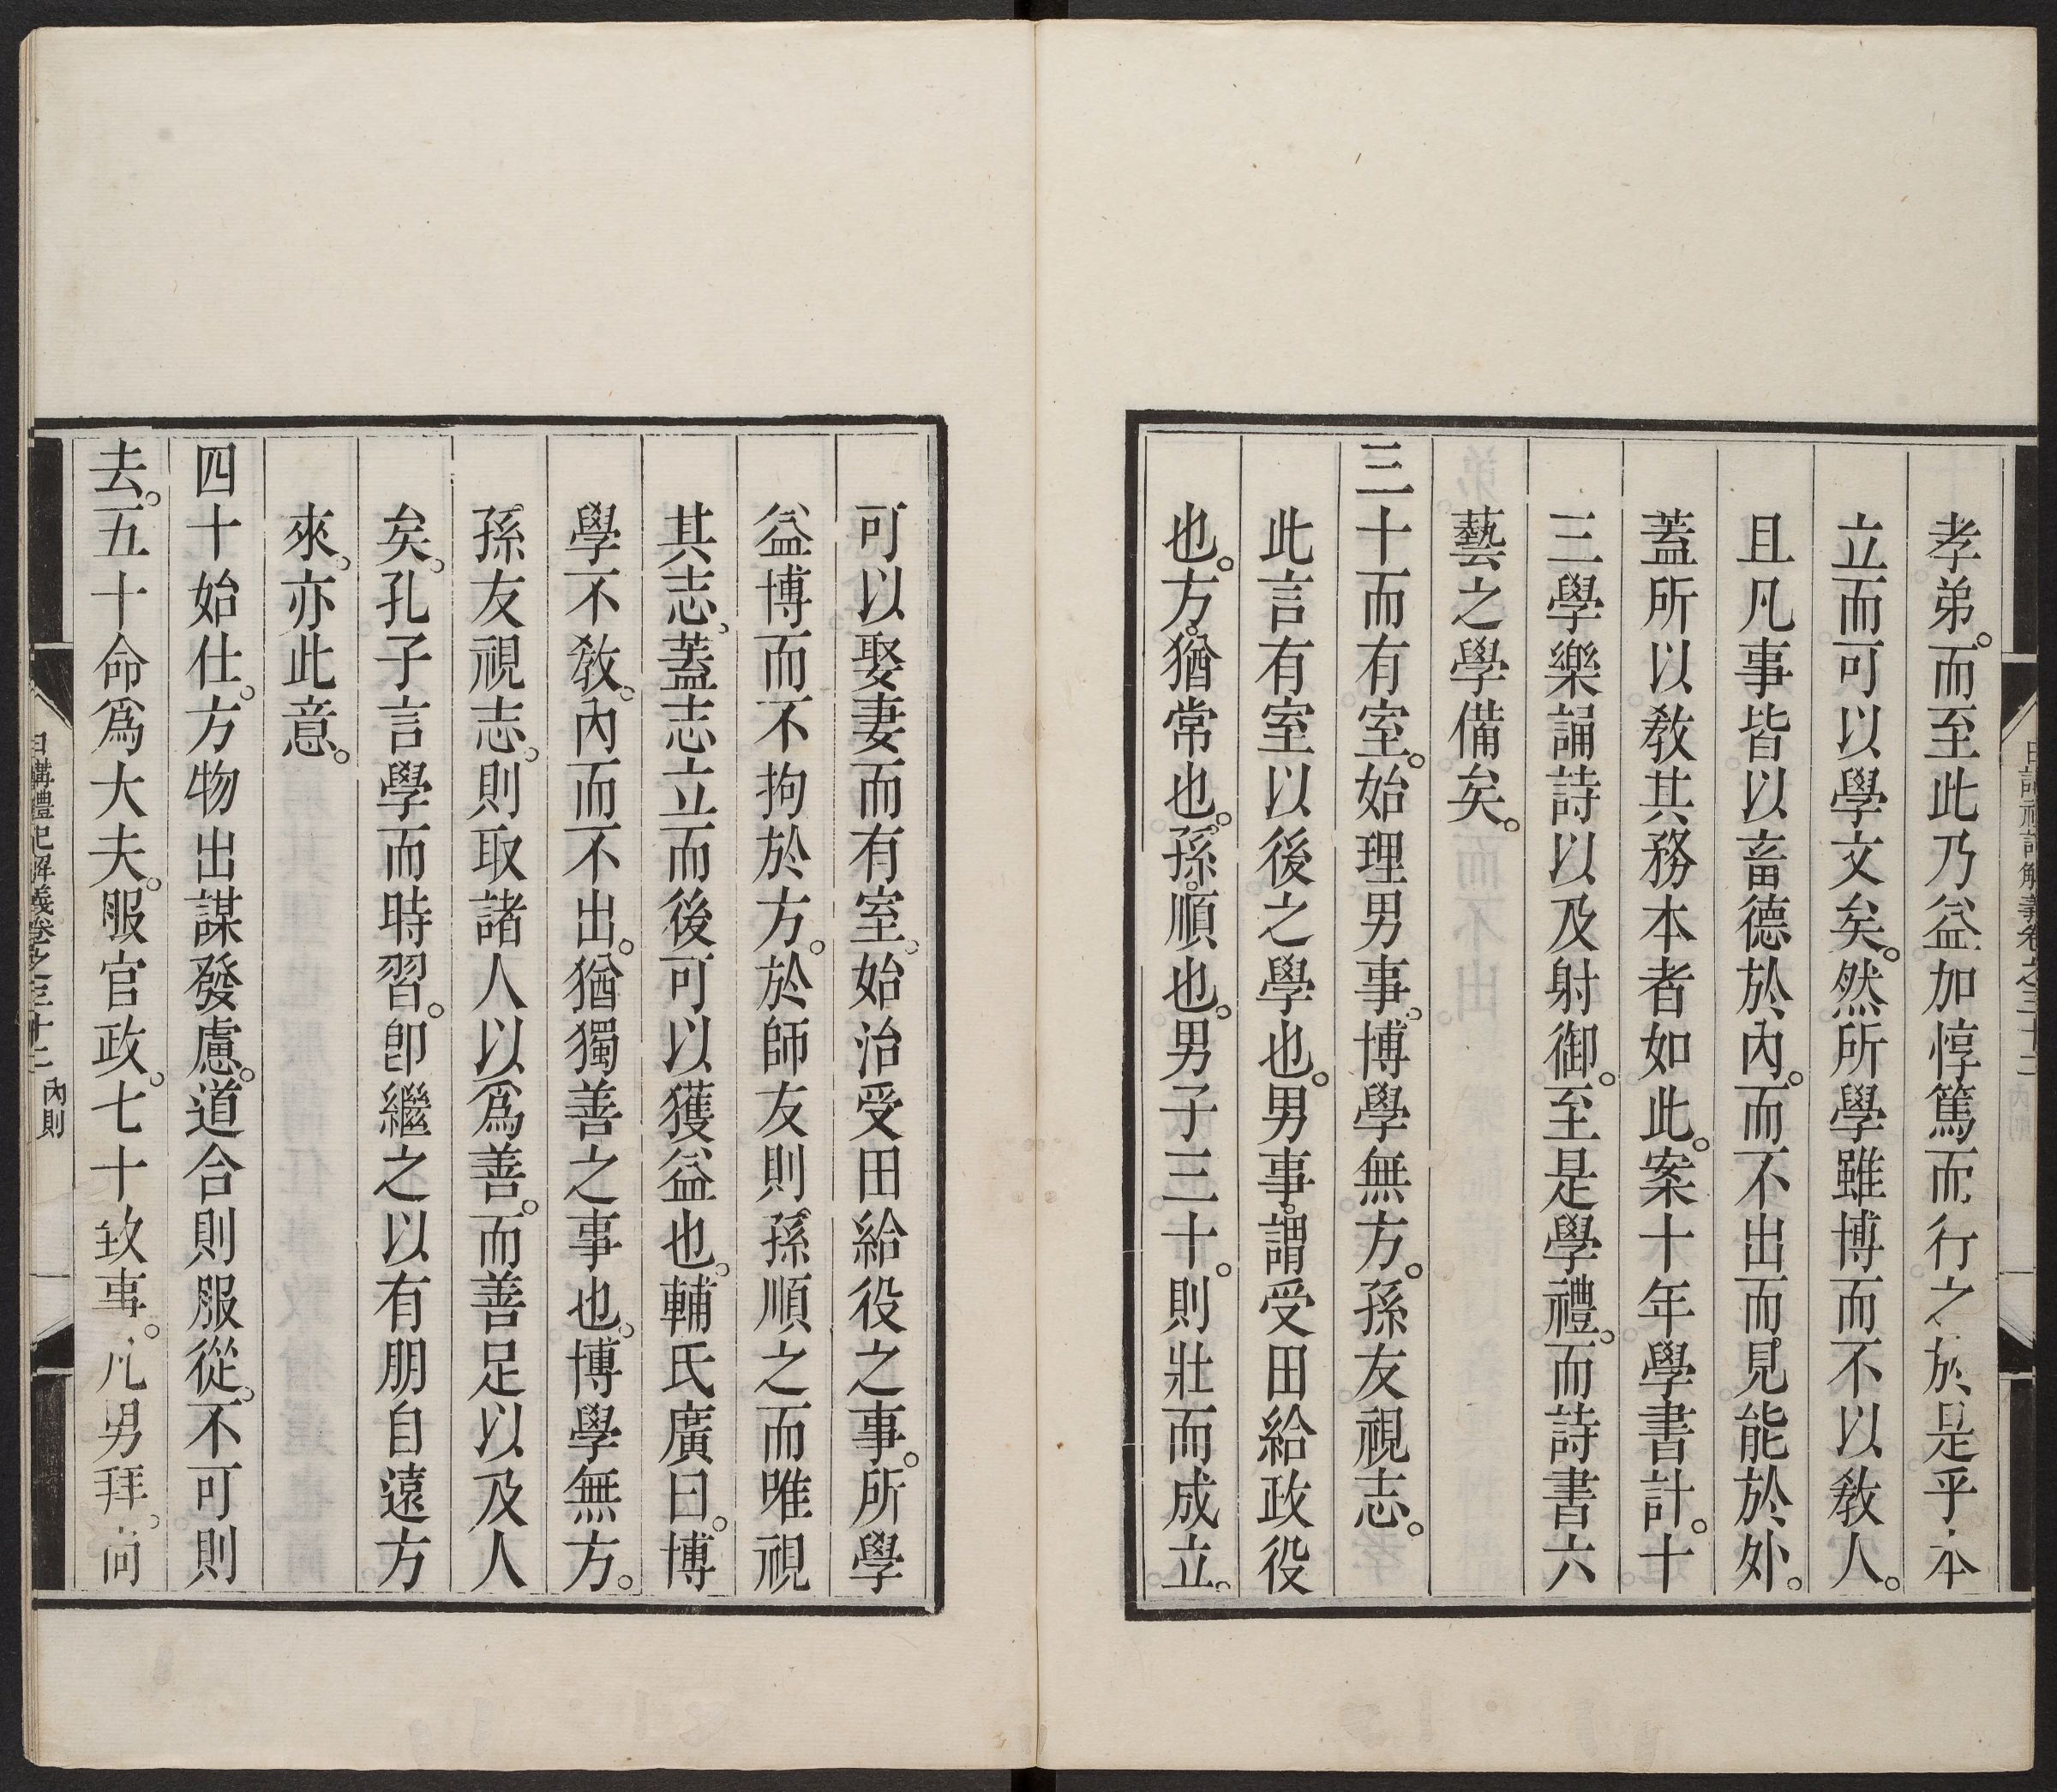 孝弟。而至此乃益加惇篤而行之於是乎本
立而可以學文矣。然所學雖博而不以敎人。
且凡事皆以畜德於內。而不出而見能於外。
蓋所以敎其務本者如此。案十年學書計。十
三學樂誦詩以及射御。至是學禮。而詩書六
藝之學備矣。
三十而有室。始理男事。博學無方。孫友視志。
此言有室以後之學也。男事。謂受田給政役
也。方。猶常也。孫。順也。男子三十。則壯而成立。
可以娶妻而有室。始治受田給役之事。所學
益博而不拘於方。於師友則孫順之而唯視
其志。蓋志立而後可以獲益也。輔氏廣曰。博
學不敎。內而不出。猶獨善之事也。博學無方。
孫友視志。則取諸人以爲善。而善足以及人
矣。孔子言學而時習。卽繼之以有朋自遠方
來。亦此意。
四十始仕。方物出謀發慮。道合則服從。不可則
去。五十命爲大夫。服官政。七十致事。凡男拜。尙
日講禮記解義卷之三十二 內則